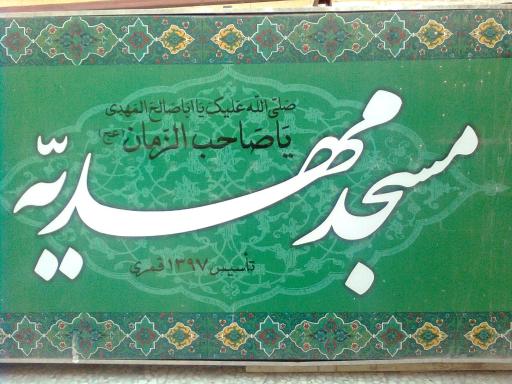 صلی الله علیک یا اباصالح المهدی
یا صاحب الزمان (عج)
مسجد مهدیّه
تأسیس ۱۳۹۷ قمری